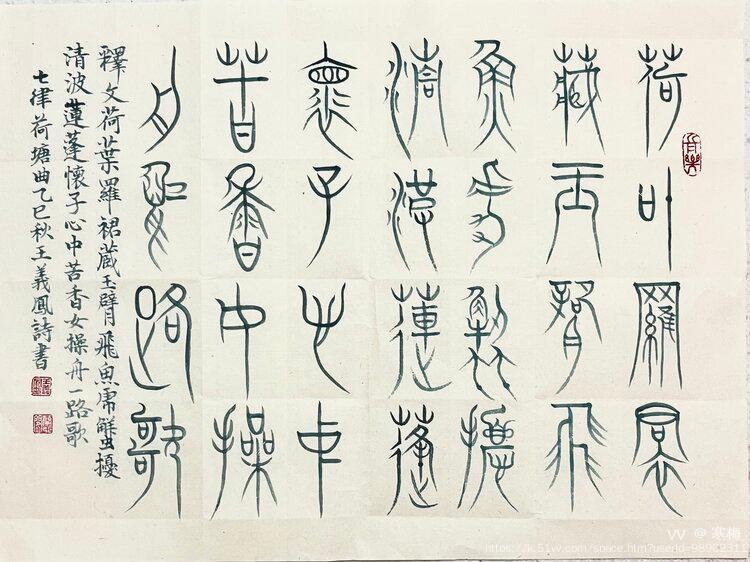 荷叶羅裙
藏玉臂飛
魚虎蟹擾
清波蓮蓬
懷子心中
苦香女操
舟一路歌
釋文荷葉羅裙藏玉臂飛魚虎蟹擾
清波蓮蓬懷子心中苦香女操舟一路歌
七律荷塘曲乙巳秋王義鳳詩書
VV @ 寒梅